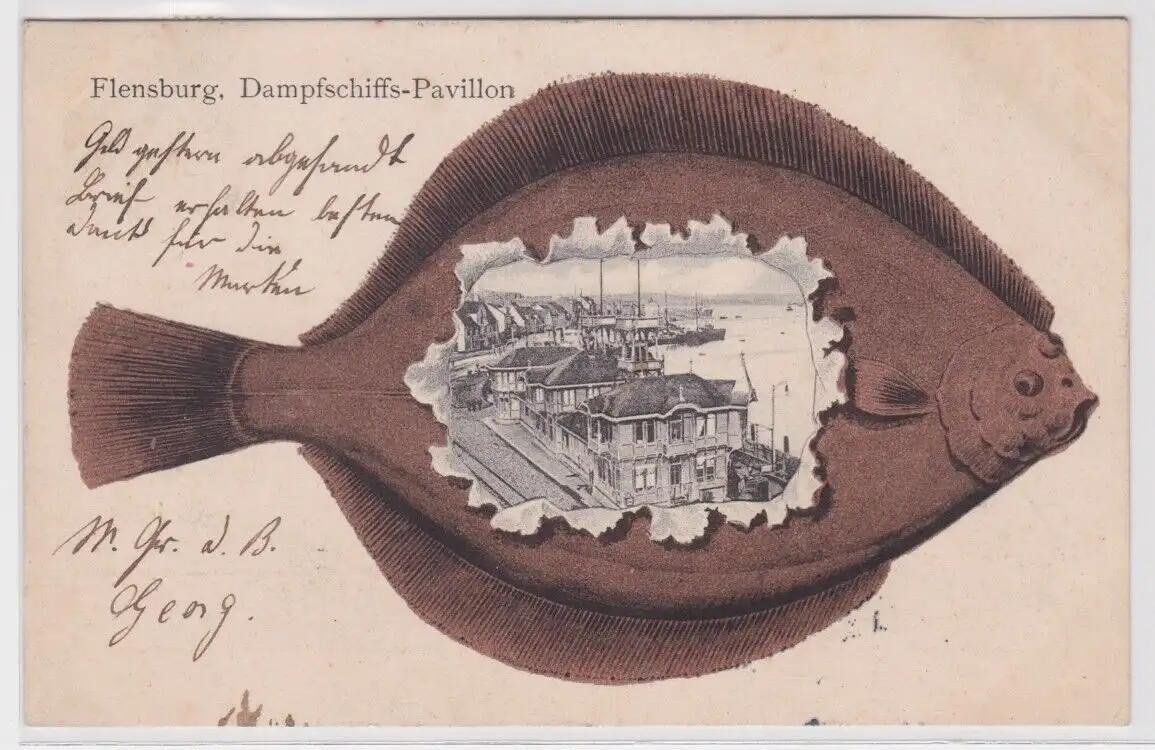 Flensburg, Dampfschiffs-Pavillon
Geld gestern abgesandt
Brief erhalten besten
Dank für die
Marken
M. Gr. d. B.
Georg.